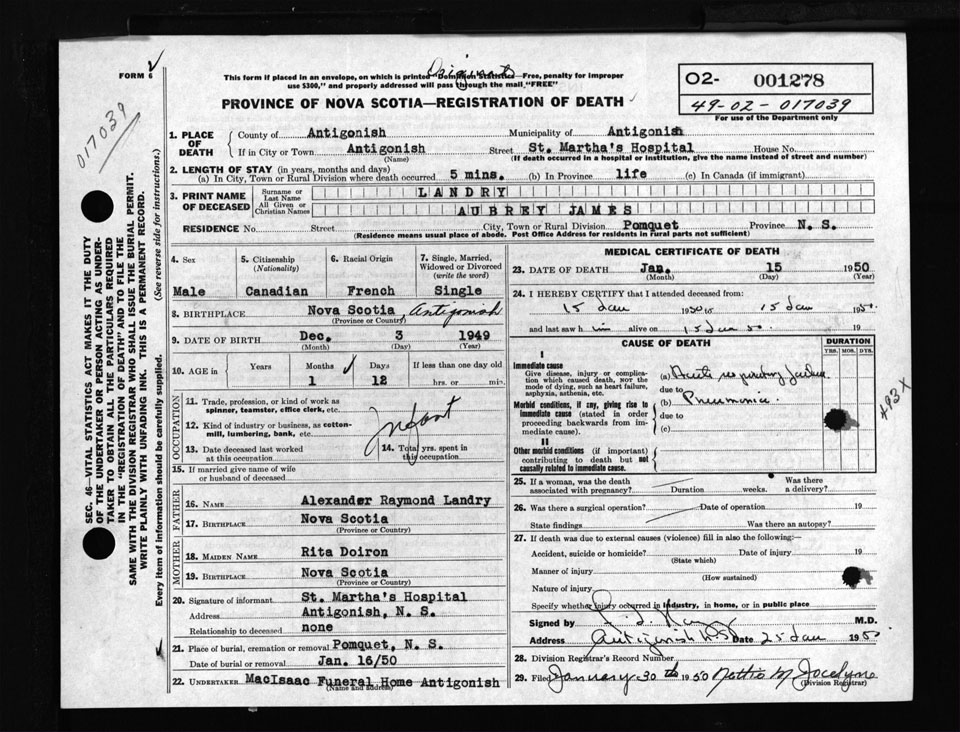 FORM 6
Original
This form if placed in an envelope, on which is printed "Dominion Statistics—Free, penalty for improper
use $300," and properly addressed will pass through the mail "FREE"
PROVINCE OF NOVA SCOTIA—REGISTRATION OF DEATH
O2- 001278
49-02-017039
For use of the Department only
017039
SEC. 46—VITAL STATISTICS ACT MAKES IT THE DUTY
OF THE UNDERTAKER OR PERSON ACTING AS UNDER-
TAKER TO OBTAIN ALL THE PARTICULARS REQUIRED
IN THE "REGISTRATION OF DEATH" AND TO FILE THE
SAME WITH THE DIVISION REGISTRAR WHO SHALL ISSUE THE BURIAL PERMIT.
WRITE PLAINLY WITH UNFADING INK. THIS IS A PERMANENT RECORD.
Every item of information should be carefully supplied. (See reverse side for instructions.)
1. PLACE OF DEATH
County of Antigonish Municipality of Antigonish
If in City or Town Antigonish Street St. Martha's Hospital House No.
(Name) (If death occurred in a hospital or institution, give the name instead of street and number)
2. LENGTH OF STAY (in years, months and days)
(a) In City, Town or Rural Division where death occurred 5 mins. (b) In Province life (c) In Canada (if immigrant)
3. PRINT NAME OF DECEASED
Surname or Last Name LANDRY
All Given or Christian Names AUBREY JAMES
RESIDENCE No. Street City, Town or Rural Division Pomquet Province N. S.
(Residence means usual place of abode. Post Office Address for residents in rural parts not sufficient)
4. Sex 5. Citizenship (Nationality) 6. Racial Origin 7. Single, Married, Widowed or Divorced (write the word)
Male Canadian French Single
8. BIRTHPLACE Nova Scotia, Antigonish
(Province or Country)
9. DATE OF BIRTH Dec. 3 1949
(Month) (Day) (Year)
10. AGE IN Years Months Days If less than one day old
1 12 hrs. or min.
OCCUPATION
11. Trade, profession, or kind of work as
spinner, teamster, office clerk, etc.
Infant
12. Kind of industry or business, as cotton-
mill, lumbering, bank, etc.
13. Date deceased last worked
at this occupation
14. Total yrs. spent in
this occupation
15. If married give name of wife
or husband of deceased
FATHER
16. NAME Alexander Raymond Landry
17. BIRTHPLACE Nova Scotia
(Province or Country)
MOTHER
18. MAIDEN NAME Rita Doiron
19. BIRTHPLACE Nova Scotia
(Province or Country)
20. Signature of informant St. Martha's Hospital
Address Antigonish, N. S.
Relationship to deceased none
21. Place of burial, cremation or removal Pomquet, N. S.
Date of burial or removal Jan. 16/50
22. UNDERTAKER MacIsaac Funeral Home Antigonish
(Name and address)
MEDICAL CERTIFICATE OF DEATH
23. DATE OF DEATH Jan. 15 1950
(Month) (Day) (Year)
24. I HEREBY CERTIFY that I attended deceased from:
15 Jan 1950 to 15 Jan 1950
and last saw him alive on 15 Jan 50 19
CAUSE OF DEATH DURATION
YRS. MOS. DYS.
I
Immediate cause
Give disease, injury or complica-
tion which caused death, NOT the
mode of dying, such as heart failure,
asphyxia, asthenia, etc.
(a) Acute respiratory failure
due to
Morbid conditions, if any, giving rise to
immediate cause (stated in order
proceeding backwards from im-
mediate cause).
(b) Pneumonia
due to
(c)
II
Other morbid conditions (if important)
contributing to death but not
causally related to immediate cause.
25. If a woman, was the death
associated with pregnancy? Duration weeks. Was there
a delivery?
26. Was there a surgical operation? Date of operation 19
State findings Was there an autopsy?
27. If death was due to external causes (violence) fill in also the following:—
Accident, suicide or homicide? Date of injury 19
(State which)
Manner of injury
(How sustained)
Nature of injury
Specify whether injury occurred in industry, in home, or in public place
Signed by M.D.
Address Antigonish N.S. Date 25 Jan 1950
28. Division Registrar's Record Number
29. Filed January 30th 1950 Nettie M Jocelyne
(Division Registrar)